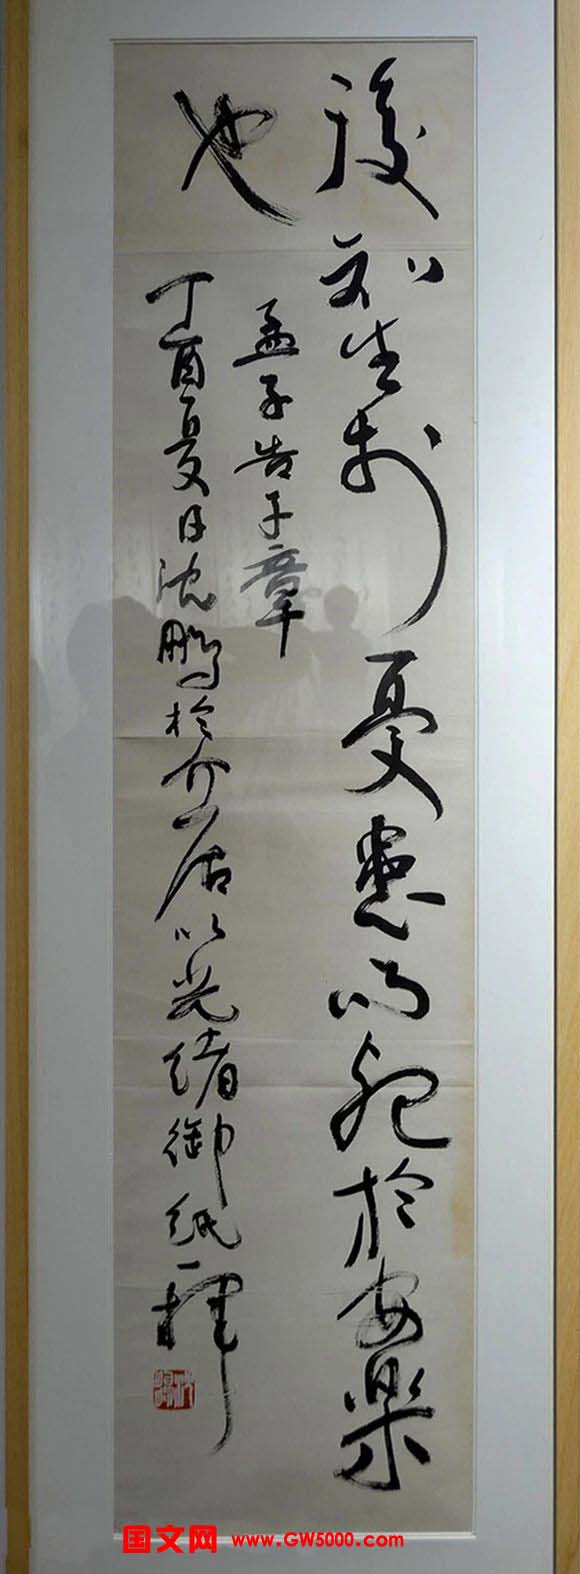 後知生於憂患而死於安樂
也
孟子告子章
丁酉夏日沈鹏於介居以光绪御纸一揮
国文网 www.GW5000.com